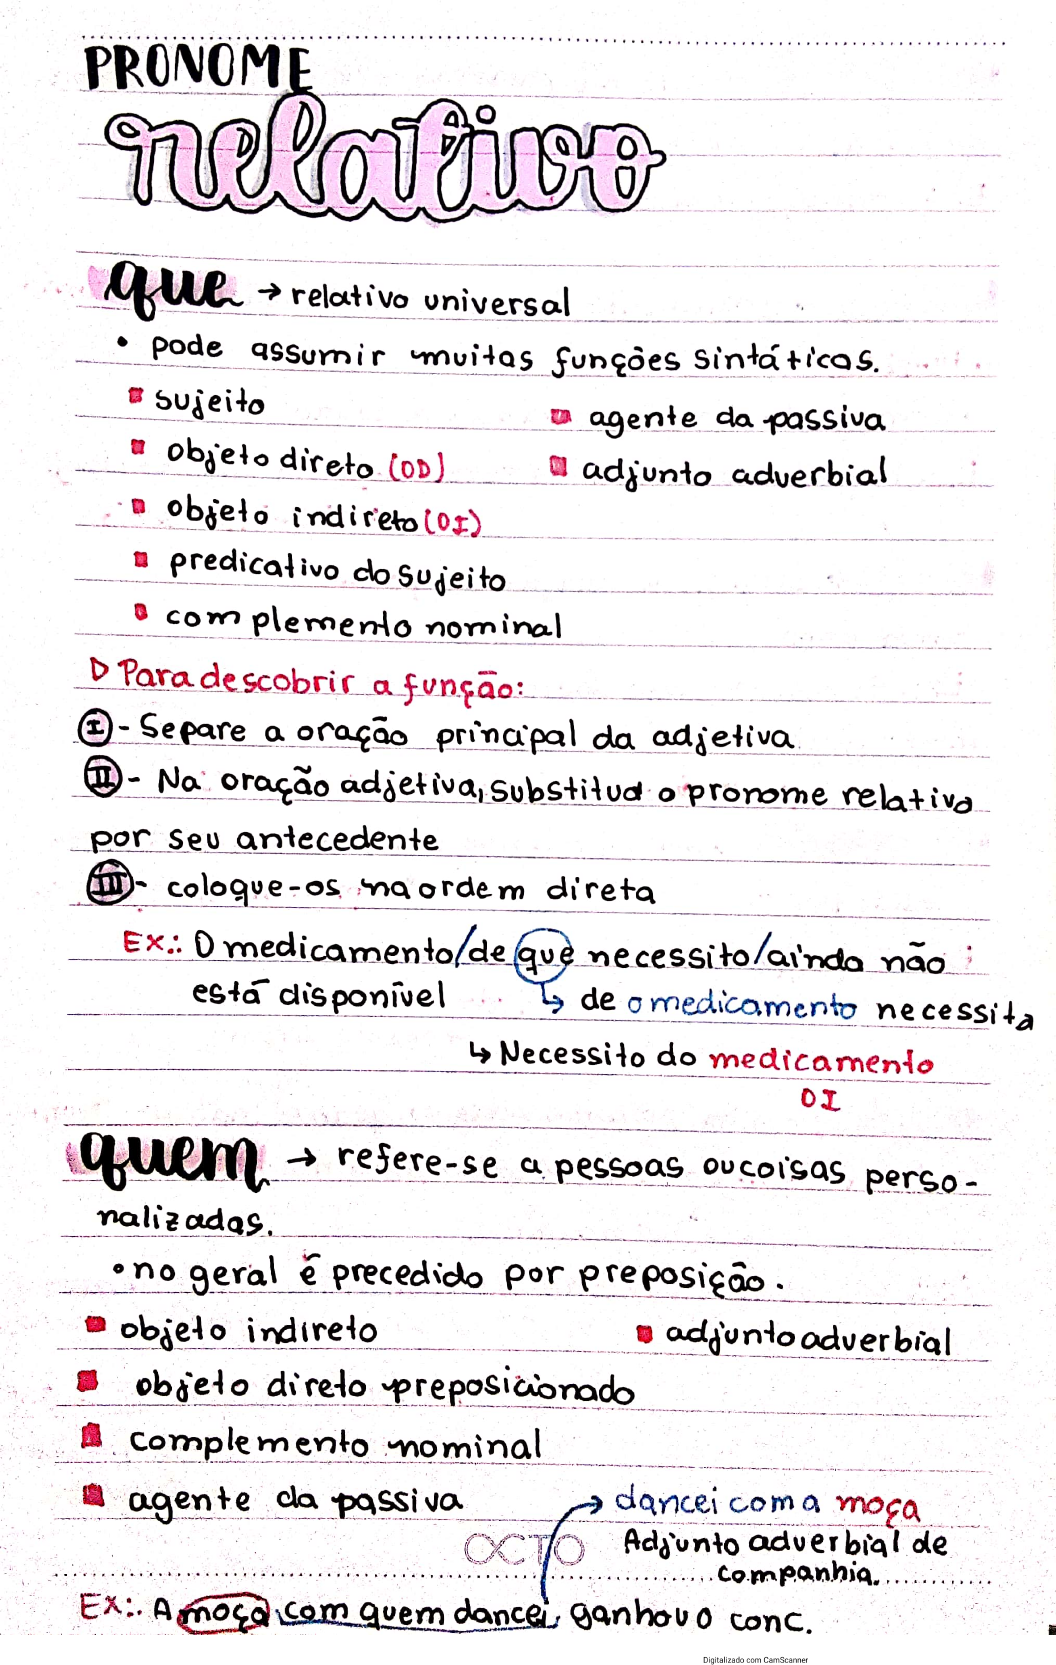 PRONOME
relativo
que → relativo universal
• pode assumir muitas funções sintáticas.
▪ sujeito
▪ agente da passiva
▪ objeto direto (OD)
▪ adjunto adverbial
▪ objeto indireto (OI)
▪ predicativo do sujeito
▪ complemento nominal
▷ Para descobrir a função:
I - Separe a oração principal da adjetiva
II - Na oração adjetiva, substitua o pronome relativo
por seu antecedente
III - coloque-os na ordem direta
Ex.: O medicamento/de que necessito/ainda não
está disponível
↳ de o medicamento necessita
↳ Necessito do medicamento
OI
quem → refere-se a pessoas ou coisas perso-
nalizadas.
• no geral é precedido por preposição.
▪ objeto indireto
▪ adjunto adverbial
▪ objeto direto preposicionado
▪ complemento nominal
▪ agente da passiva
→ dancei com a moça
OCTO
Adjunto adverbial de
companhia.
Ex.: A moça, com quem dancei, ganhou o conc.
Digitalizado com CamScanner